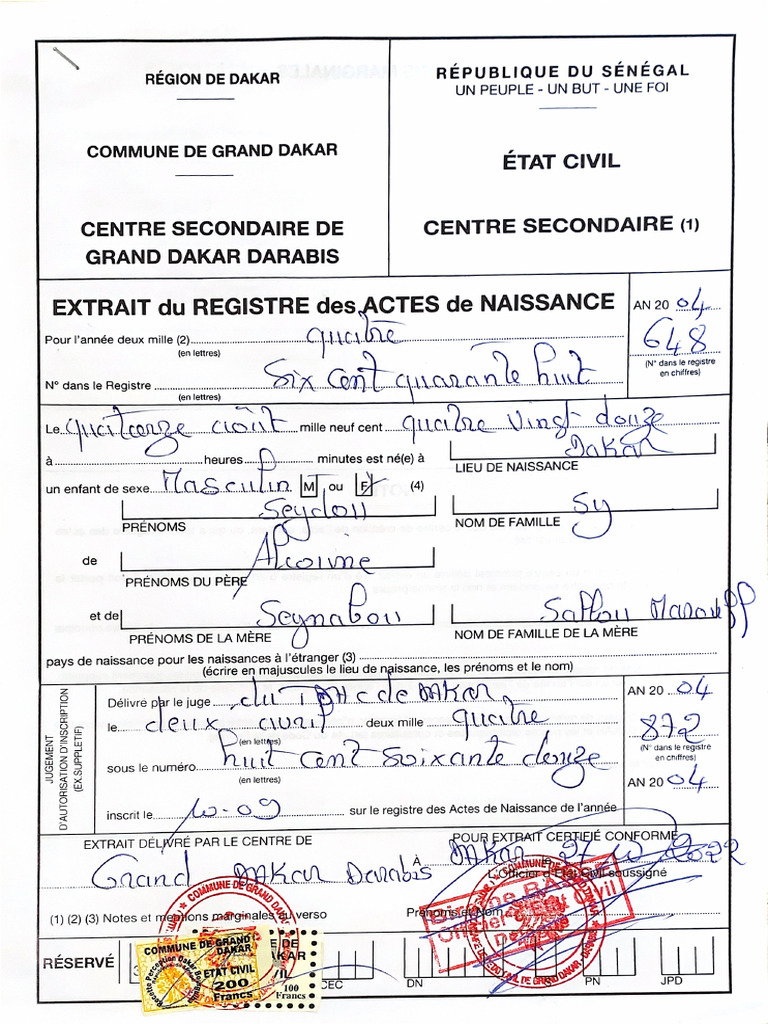 RÉGION DE DAKAR
COMMUNE DE GRAND DAKAR
CENTRE SECONDAIRE DE
GRAND DAKAR DARABIS
RÉPUBLIQUE DU SÉNÉGAL
UN PEUPLE - UN BUT - UNE FOI
ÉTAT CIVIL
CENTRE SECONDAIRE (1)
EXTRAIT du REGISTRE des ACTES de NAISSANCE
AN 20 04
Pour l'année deux mille (2) quatre
(en lettres)
648
(N° dans le registre
en chiffres)
N° dans le Registre Six cent quarante huit
(en lettres)
Le quatorze août mille neuf cent quatre vingt douze
à heures minutes est né(e) à Dakar
LIEU DE NAISSANCE
un enfant de sexe Masculin M ou F (4)
Seydou Sy
PRÉNOMS NOM DE FAMILLE
de Alioune
PRÉNOMS DU PÈRE
et de Seynabou Sallou
PRÉNOMS DE LA MÈRE NOM DE FAMILLE DE LA MÈRE
pays de naissance pour les naissances à l'étranger (3)
(écrire en majuscules le lieu de naissance, les prénoms et le nom)
JUGEMENT
D'AUTORISATION D'INSCRIPTION
(EX.SUPPLETIF)
Délivré par le juge du de DAKAR
AN 20 04
le deux avril deux mille quatre
(en lettres)
872
(N° dans le registre
en chiffres)
sous le numéro huit cent soixante douze
(en lettres)
AN 20 04
inscrit le 10-09 sur le registre des Actes de Naissance de l'année
EXTRAIT DÉLIVRÉ PAR LE CENTRE DE
Grand DAKAR Darabis
POUR EXTRAIT CERTIFIÉ CONFORME
À DAKAR 2022
L'Officier d'Etat Civil soussigné
Prénoms et Nom
(1) (2) (3) Notes et mentions marginales au verso
COMMUNE DE GRAND DAKAR
Officier Etat Civil
RÉSERVÉ
CEC
DN
PN
JPD
COMMUNE DE GRAND
DAKAR
ETAT CIVIL
200
Francs
100
Francs